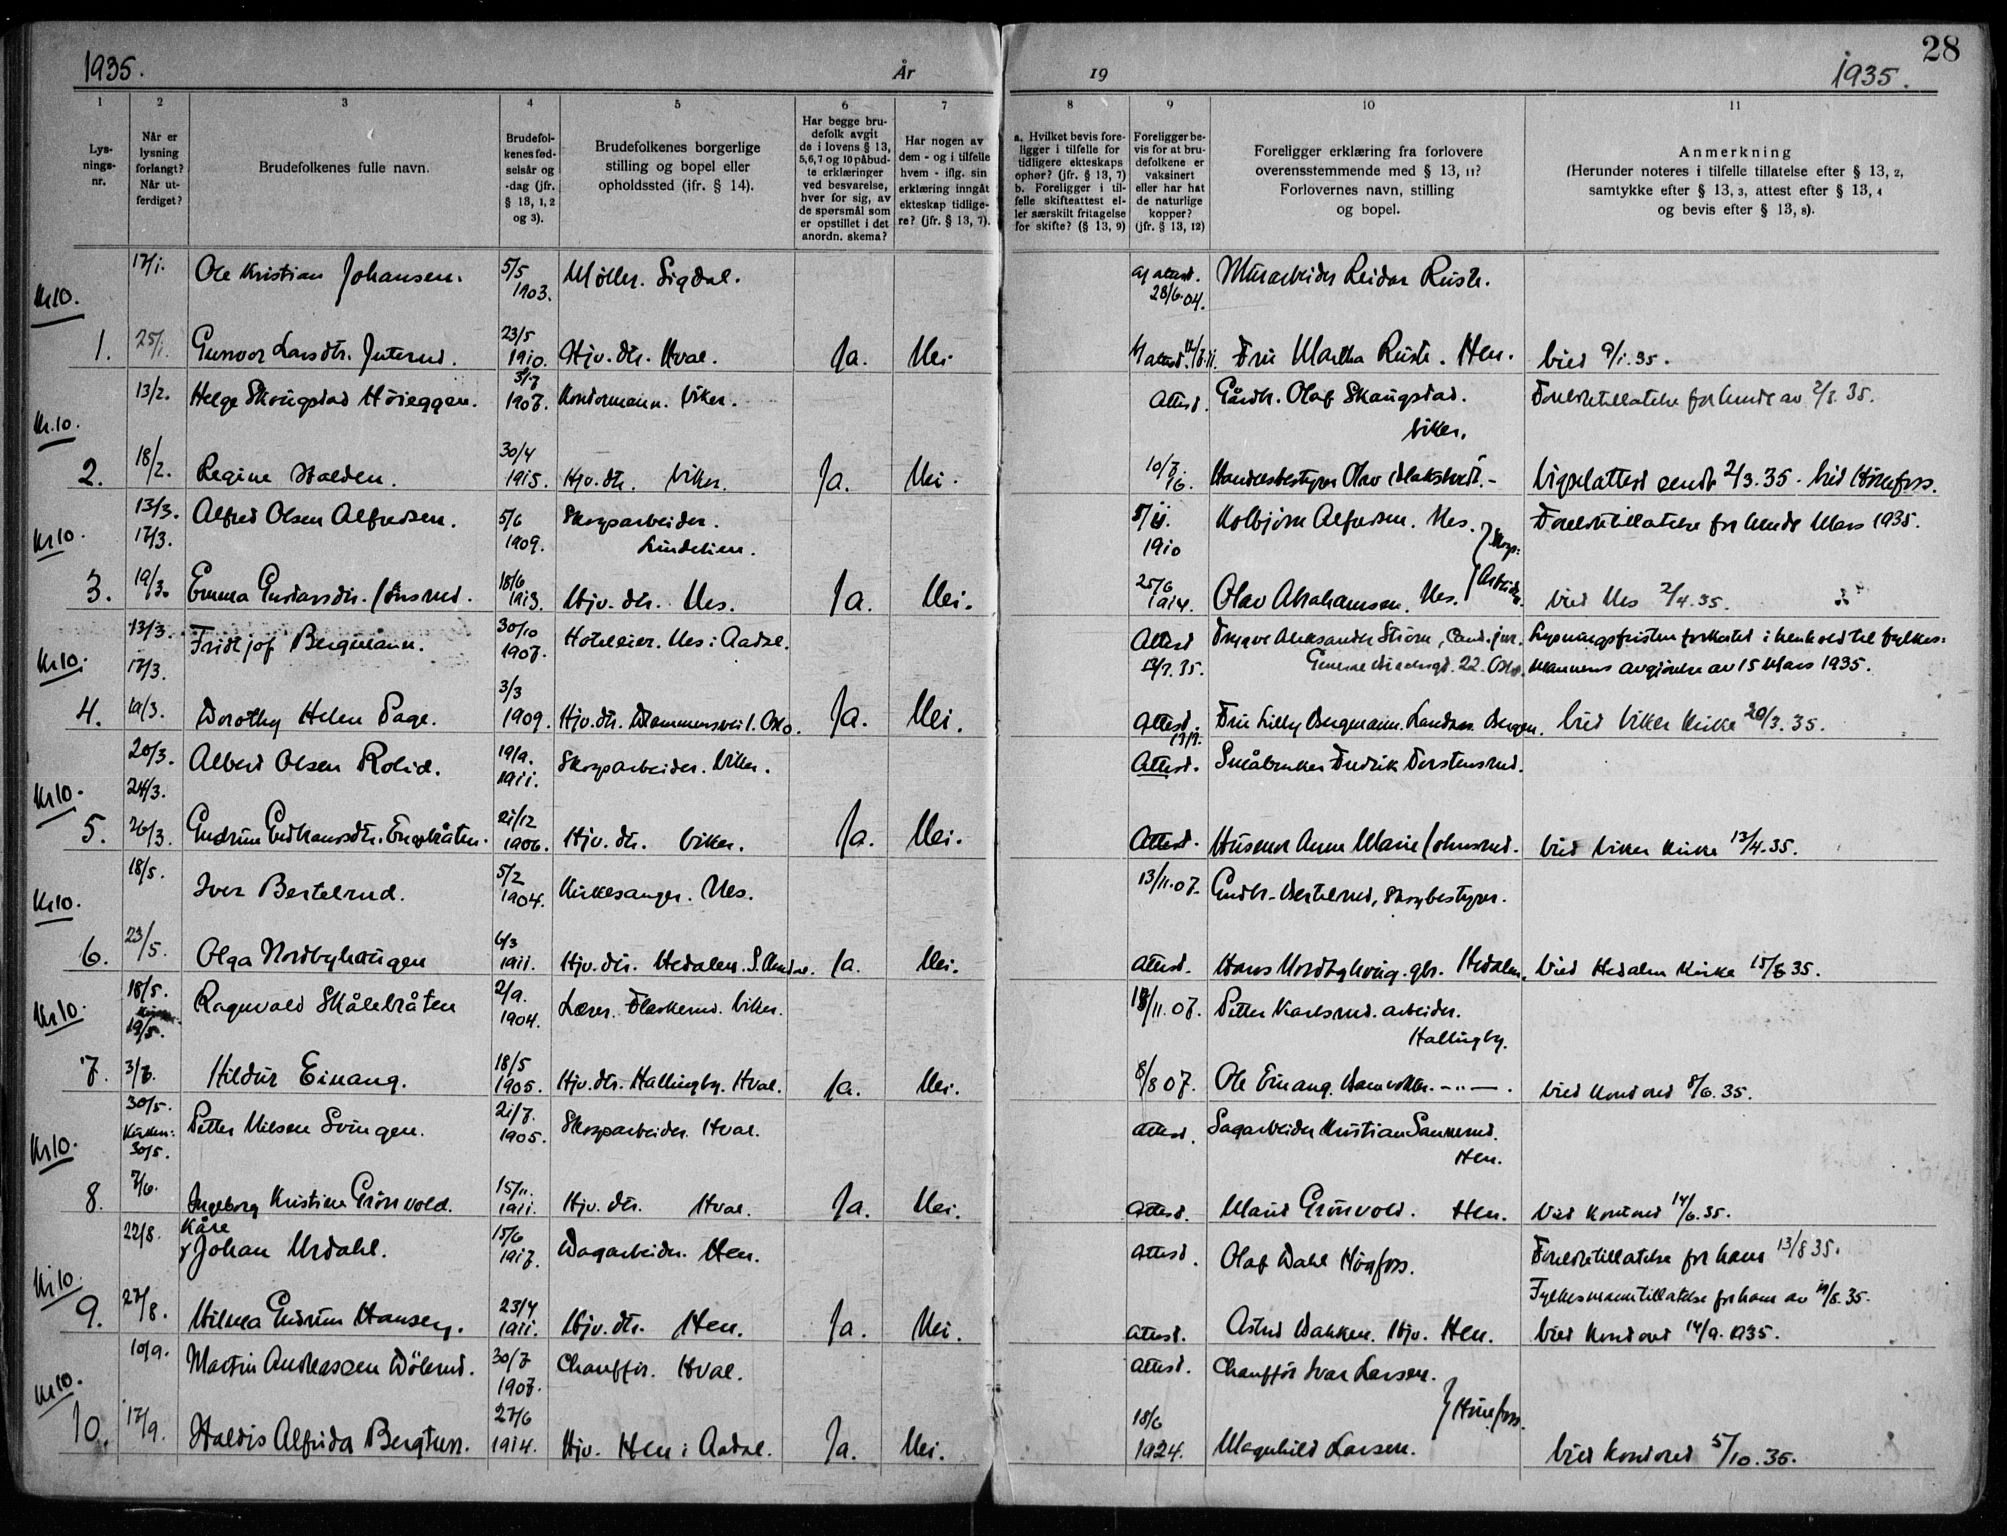 1935.
År
19
1935.
28
1
2
3
4
5
6
7
8
9
10
11
Lys-
nings-
nr.
Når er
lysning
forlangt?
Når ut-
ferdiget?
Brudefolkenes fulle navn.
Brudefol-
kenes fød-
selsår og
-dag (jfr.
§ 13, 1, 2
og 3).
Brudefolkenes borgerlige
stilling og bopel eller
opholdssted (ifr. § 14).
Har begge bru-
defolk avgit
de i lovens § 13,
5,6,7 og 10 påbud-
te erklæringer
ved besvarelse,
hver for sig, av
de spørsmål som
er opstillet i det
anordn. skema?
Har nogen av
dem - og i tilfelle
hvem - iflg. sin
erklæring inngåt
ekteskap tidlige-
re? (jfr. § 13, 7).
a. Hvilket bevis fore-
ligger i tilfelle for
tidligere ekteskaps
ophør? (jfr. § 13, 7)
b. Foreligger i til-
felle skifteattest el-
ler særskilt fritagelse
for skifte? (§ 13, 9)
Foreligger be-
vis for at bru-
defolkene er
vaksinert
eller har hat
de naturlige
kopper?
(jfr. § 13, 12)
Foreligger erklæring fra forlovere
overensstemmende med § 13, 11?
Forlovernes navn, stilling
og bopel.
Anmerkning
(Herunder noteres i tilfelle tillatelse efter § 13, 2,
samtykke efter § 13, 3, attest efter § 13, 4
og bevis efter § 13, 8).
Kr 10.
17/1. Ole Kristian Johansen. 5/5 1903. Møller. Sigdal. 28/6.04. Murarbeider Reidar Ruste.
1. 25/1. Gunvor Larsdtr. Juterud. 23/5 1910. Hjv. dtr. Hval. Ja. Nei. Fru Martha Ruste. Hen. Viet 9/1.35.
Kr. 10.
13/2. Helge Skougstad Høieggen. 3/7 1907. Kontormann. Viker. Attest. Gårdbr. Olaf Skaugstad. Viker. Foreldretillatelse for hende av 2/3.35.
2. 18/2. Regine Halden. 30/4 1915. Hjv. dtr. Viker. Ja. Nei. 10/7.16. Vigselattest sendt 2/3.35. Viet Hønefoss.
Kr 10.
13/3. 17/3. Alfred Olsen Alfredsen. 5/6 1909. Skogsarbeider. Lindelien. 1910 Kolbjørn Alfredsen. Nes. Foreldretillatelse for hende Mars 1935.
3. 19/3. Emma Gustavsdtr. 18/6 1913. Hjv. dtr. Nes. Ja. Nei. 25/6 1914. Olav Abrahamsen. Nes. } Skogs- arbeider. Viet Nes 2/4.35.
Kr 10.
13/3. 17/3. Fridtjof Bergmann. 30/10 1907. Hoteleier. Nes i Aadal. Attest 13/3.35. Trygve Aleksander Storm, Cand. jur. 22. Oslo. Lysningsfristen forkortet i henhold til fylkes-
mannens avgjørelse av 15 Mars 1935.
4. 19/3. Dorothy Helen Page. 3/3 1909. Hjv. dtr. Drammensvei 1. Oslo. Ja. Nei. Attest. Fru Lilly Bergmann. Bergen. Viet Viker Kirke 20/3.35.
Kr 10.
20/3. 24/3. Albert Olsen Rolid. 19/9. 1911. Skogsarbeider. Viker. Attest. Småbruker Fredrik Torstensrud.
5. 26/3. Gudrun Gudbrandsdtr. Engebråten. 21/12 1906. Hjv. dtr. Viker. Ja. Nei. Attest. Husmor Anne Marie Johnsrud. Viet Viker Kirke 13/4.35.
Kr 10.
18/5. Iver Bertelrud. 5/2 1904. Kirkesanger. Nes. 13/11.07. Gudbr. Bertelrud, Skogbestyrer.
6. 23/5. Olga Nordbyhaugen 6/3 1911. Hjv. dtr. Hedalen. S. Aurdal. Ja. Nei. Attest. Hans Nordbyhaug. gbr. Hedalen. Viet Hedalen Kirke 15/6 35.
Kr 10.
18/5. 19/5. Ragnvald Skålebråten 2/9. 1904. Lærer. Flaskerud. Viker. 18/11.07. Petter Karlsrud. arbeider. Hallingby.
7. 3/6. Hildur Einang. 18/5 1905. Hjv. dtr. Hallingby. Hval. Ja. Nei. 8/8 07. Ole Einang. Damvokter. -"-. Viet kontoret 8/6.35.
Kr 10.
30/5. Kirken: 30/5. Petter Nilsen Svingen. 21/7. 1905. Skogsarbeider. Hval. Attest. Sagarbeider Kristian Sannerud. Hen.
8. 7/6. Ingeborg Kristine Grønvold. 15/11. 1911. Hjv. dtr. Hval. Ja. Nei. Attest. Marit Grønvold. Hen. Viet kontoret 14/6.35.
Kr 10.
22/8. Kåre Johan Urdahl. 15/6 1917. Dagarbeider. Hen. Attest. Olaf Dahl Høgfoss. Foreldretillatelse for ham 13/8 35.
Fylkesmanntillatelse for ham av 19/8.35.
9. 27/8. Hilma Gudrun Hansen. 23/4 1911. Hjv. dtr. Hen. Ja. Nei. Attest. Astrid Bakken. Hjv. Hen. Viet kontoret 14/9.1935.
Kr 10.
10/9. Martin Andreassen Dølerud. 30/7 1907. Chauffør. Hval. Attest. Chauffør Ivar Larsen.
10. 17/9. Haldis Alfrida Bergtun. 27/6 1914. Hjv. Hen i Aadal. Ja. Nei. 18/6 1924. Magnhild Larsen. } Hønefoss. Viet kontoret 5/10.35.